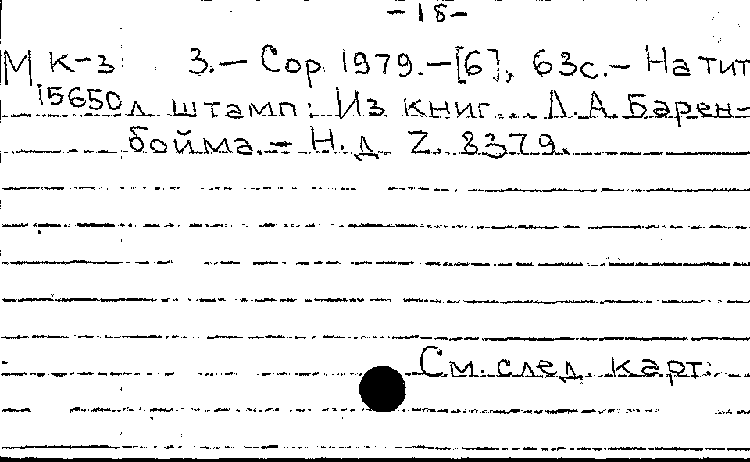 -18-
М к-з 3.- Сор. 1979.-[6], 63с.- На тит
15650 л штамп: Из книг... Л.А. Барен-
бойма.- Н.д. Z. 8379.
См. след. карт.